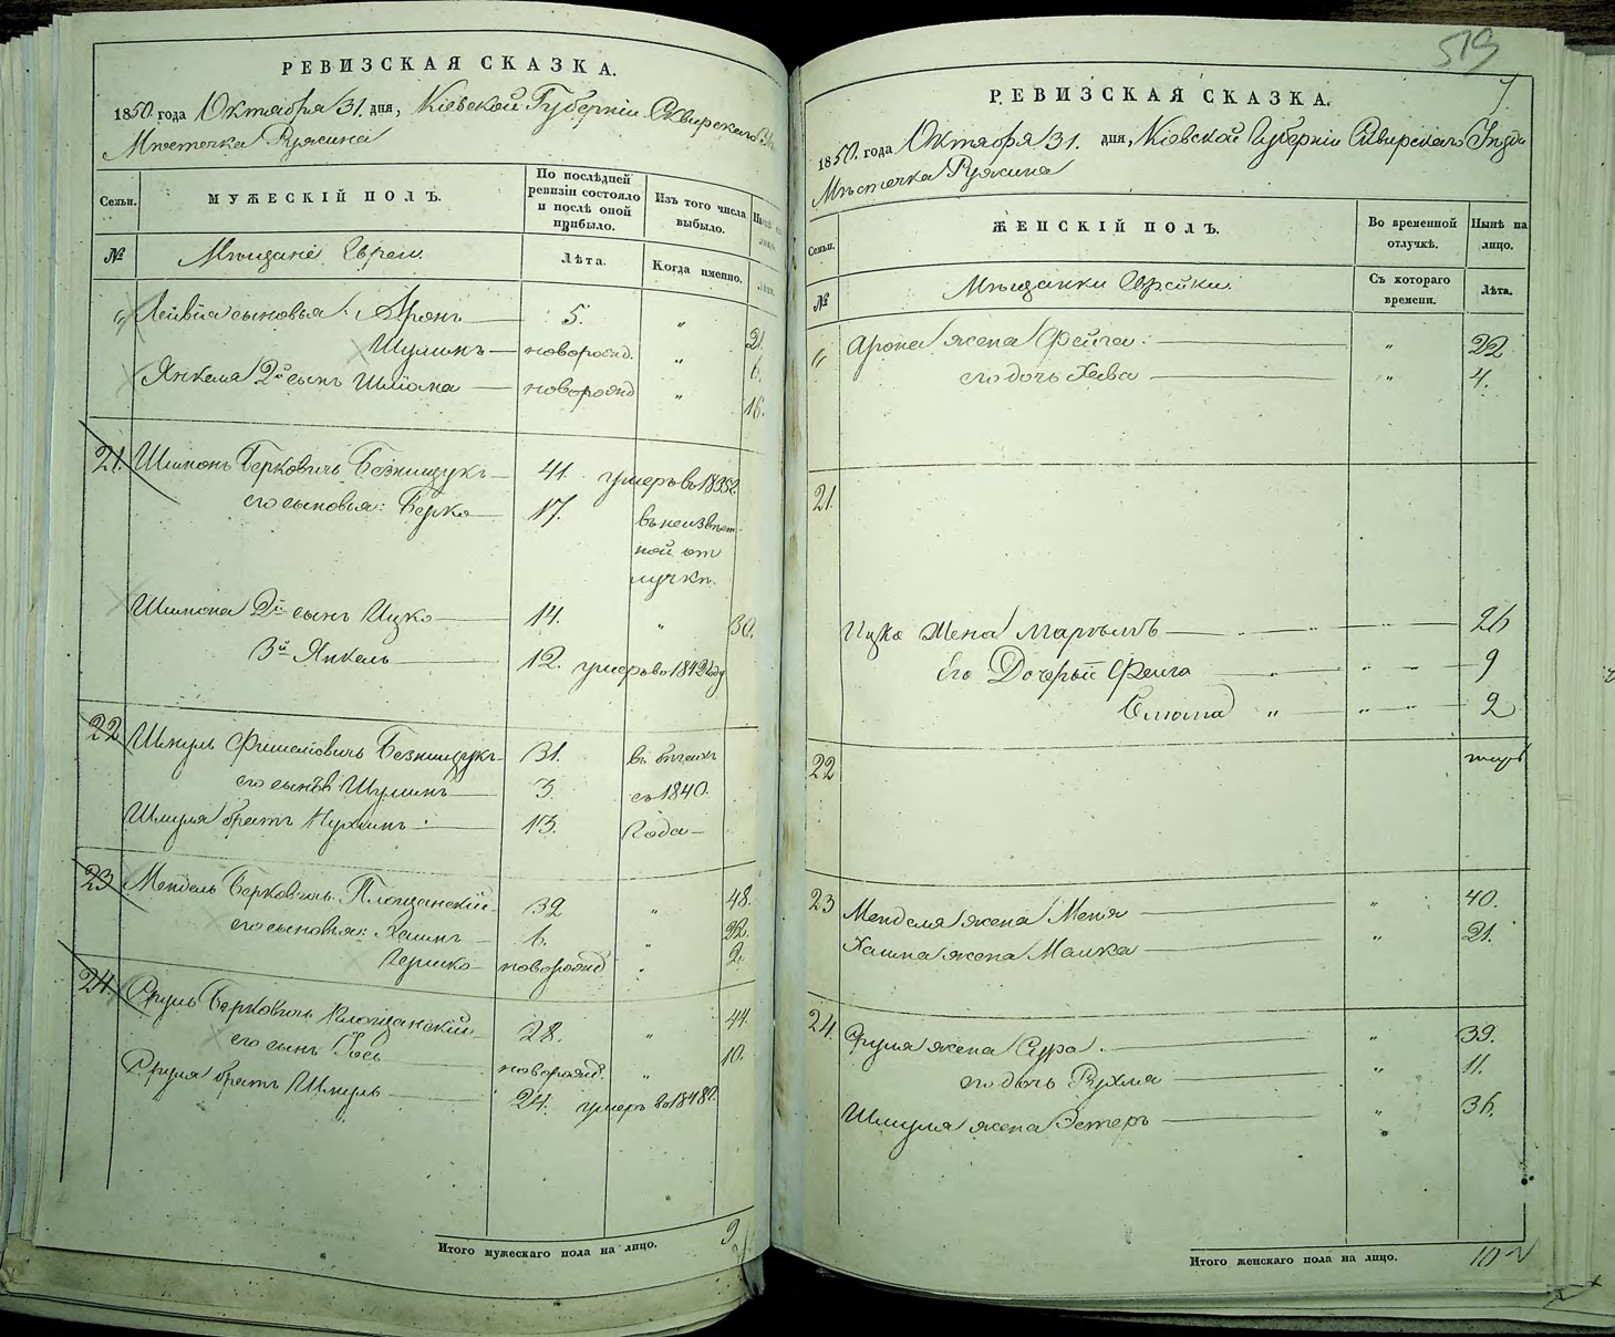 РЕВИЗСКАЯ СКАЗКА.
1850. года Октября 31. дня, Кіевской Губерніи Сквирскаго
Местечка Ружина
Семьи.
МУЖЕСКІЙ ПОЛЪ.
По послѣдней ревизіи состояло и послѣ оной прибыло.
Изъ того числа выбыло.
№
Мещане Евреи.
Лѣта.
Когда именно.
Лѣта.
Лейбы сыновья: Аронъ 5. " 21.
Шулимъ новорожд. " 6.
Янкеля 2й сынъ Шлiома новорожд " 16.
21. Шимонъ Берковичъ Безнищукъ 41. умеръ въ 1835г.
его сыновья: Берко 17. въ неизвѣст-
ной от
лучкѣ.
Шимона 2й сынъ Ицко 14. " 30.
3й Янкель 12. умеръ въ 1842 году
22 Шмуль Фишелевичъ Безнищукъ 31. въ бѣгахъ
его сынъ Шулимъ 3. съ 1840.
Шмуля братъ Нухимъ 13. Года
23 Мендель Берковичъ Площанскій 32 " 48.
его сыновья: Хаимъ 6. " 22.
Гершко новорожд " 2.
24. Сруль Берковичъ Площанскій 28. " 44.
его сынъ Іосъ новорожд. " 10.
Сруля братъ Шмуль 24. умеръ въ 1848г.
Итого мужескаго пола на лицо. 9
519
7.
РЕВИЗСКАЯ СКАЗКА.
1850. года Октября 31. дня, Кіевской Губерніи Сквирскаго Уѣзда
Мѣстечка Ружина
Семьи.
ЖЕНСКІЙ ПОЛЪ.
Во временной отлучкѣ.
Нынѣ на лицо.
№
Мѣщанки Еврейки.
Съ котораго времени.
Лѣта.
Арона жена Фейга: " 22
его дочь Хава " 4.
21.
Ицка Жена Маръимъ 26
Его Дочерьй Феига 9
Слюма " 2
22
23 Менделя жена Меня " 40.
Хаима жена Малка " 21.
24. Сруля жена Сура. " 39.
его дочь Рухля " 11.
Шмуля жена Эстеръ " 36.
Итого женскаго пола на лицо. 10